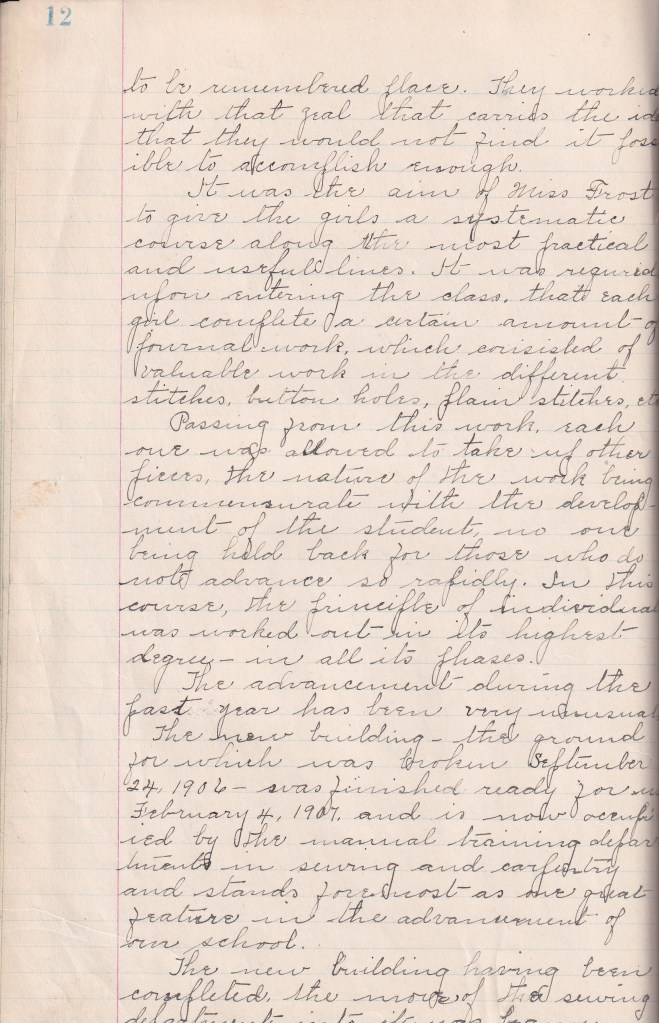 12
to be remembered place. They worked
with that zeal that carries the ide
that they would not find it poss
ible to accomplish enough.
It was the aim of Miss Frost
to give the girls a systematic
course along the most practical
and useful lines. It was required
upon entering the class, that each
girl complete a certain amount of
journal work, which consisted of
valuable work in the different
stitches, button holes, plain stitches, etc
Passing from this work, each
one was allowed to take up other
pieces, the nature of the work being
commensurate with the develop-
ment of the student, no one
being held back for those who do
not advance so rapidly. In this
course, the principle of individual
was worked out in its highest
degree – in all its phases.
The advancement during the
past year has been very unusual
The new building – the ground
for which was broken September
24, 1906 – was finished ready for
February 4, 1907, and is now occup
ied by the manual training depar
tments in sewing and carpentry
and stands foremost as one great
feature in the advancement of
our school.
The new building having been
completed, the move of the sewing
department into it was